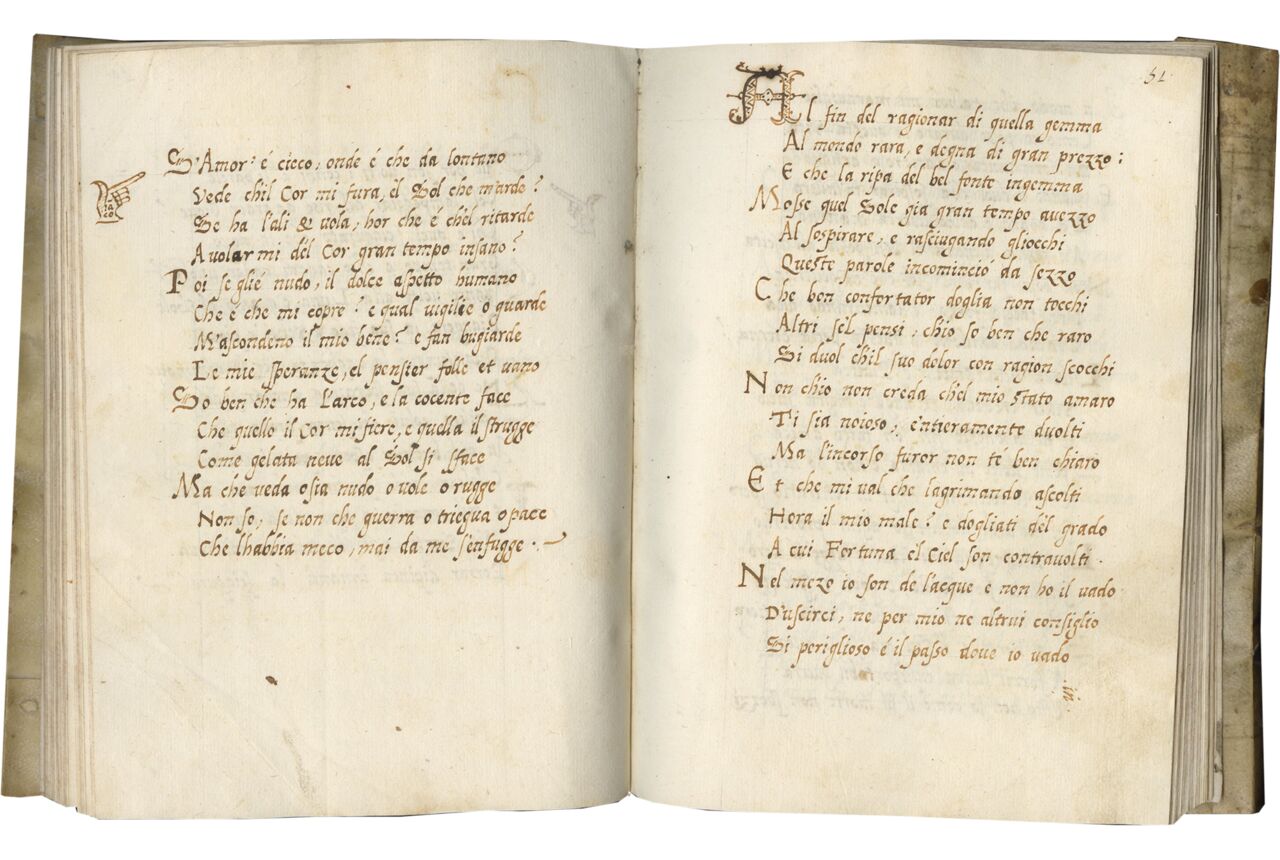 S'Amor' é cieco, onde é che da lontano
Vede ch'il Cor mi fura, él Sol che m'arde?
Se ha l'ali & uola, hor che é ch'él ritarde
A uolarmi dél Cor gran tempo insano?
Poi se glié nudo, il dolce aspetto humano
Che é che mi copre? e qual uigilie o guarde
M'ascondeno il mio bene? e fan bugiarde
Le mie speranze, el pensier folle et uano
So ben che ha l'arco, e la cocente face
Che quello il Cor mi fiere, e quella il strugge
Come gelata neue al Sol si sface
Ma che veda o sia nudo o vole o rugge
Non so, se non che guerra o triegua o pace
Che l'habbia meco, mai da me s'enfugge.
51
Al fin del ragionar di quella gemma
Al mondo rara, e degna di gran prezzo:
E che la ripa del bel fonte ingemma
Mosse quel Sole gia gran tempo auezzo
Al sospirare, e rasciugando gliocchi
Queste parole incominciò da sezzo
Che ben confortator doglia non tocchi
Altri sél pensi, ch'io so ben che raro
Si duol ch'il suo dolor con ragion scocchi
Non ch'io non creda ch'él mio stato amaro
Ti sia noioso, e'ntieramente duolti
Ma l'incorso furor non té ben chiaro
Et che mi val che lagrimando ascolti
Hora il mio male? e dogliati dél grado
A cui Fortuna el Ciel son contrauolti.
Nel mezo io son de l'acque e non ho il uado
D'uscirci, ne per mio ne altrui consiglio
Si periglioso é il passo doue io uado
in